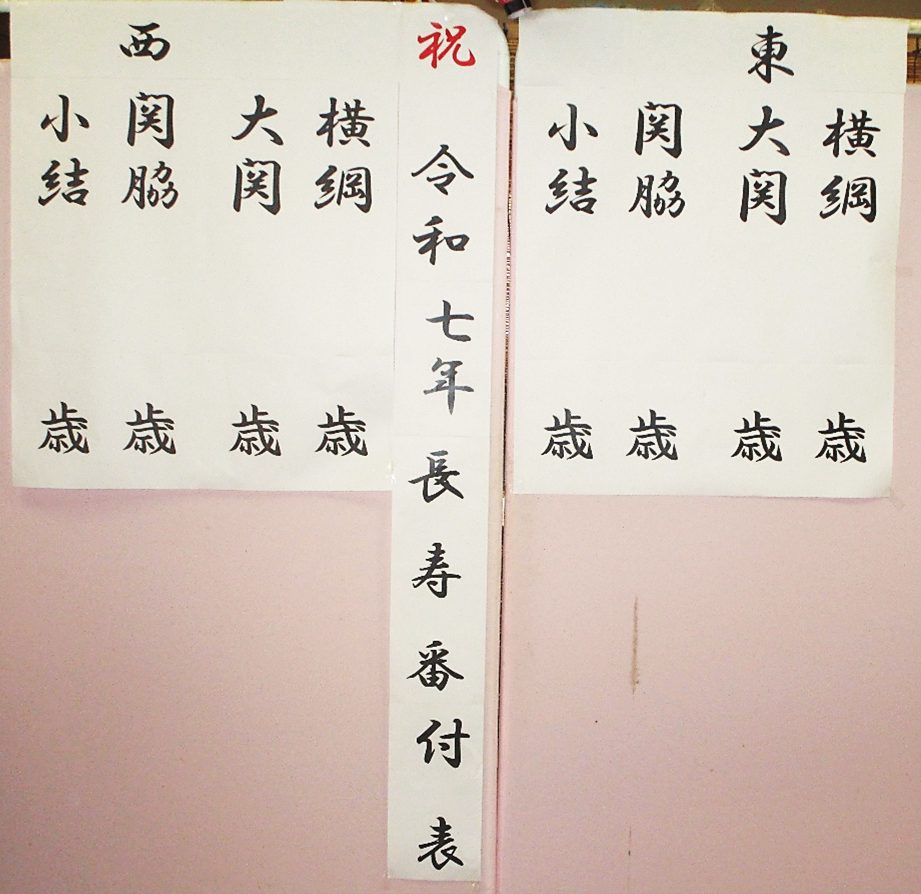 東
横綱 歳
大関 歳
関脇 歳
小結 歳
祝 令和七年長寿番付表
西
横綱 歳
大関 歳
関脇 歳
小結 歳